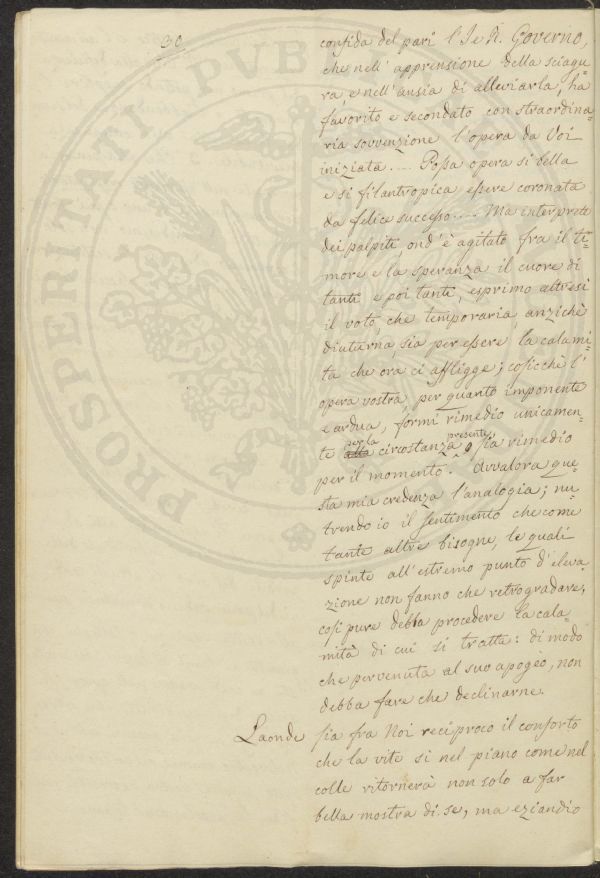 30
confida del pari l'I e R. Governo,
che nell'apprensione della sciagu=
ra, e nell'ansia di alleviarla, ha
favorito e secondato con straordina=
ria sovvenzione l'opera da Voi
iniziata. — Possa opera si bella
e si filantropica essere coronata
da felice successo — Ma interprete
dei palpiti, ond'è agitato fra il ti=
more e la speranza il cuore di
tanti e poi tanti, esprimo altresi
il voto, che temporaria, anzichè
diuturna, sia per essere la calami=
ta che ora ci affligge; cosicchè l'
opera vostra, per quanto imponente
e ardua, formi rimedio unicamen=
te alla per la circostanza presente, o sia rimedio
per il momento. Avvalora que=
sta mia credenza l'analogia; nu=
trendo io il sentimento che come
tante altre bisogne, le quali
spinte all'estremo punto d'eleva
zione non fanno che retrogradare,
cosi pure debba procedere la cala=
mità di cui si tratta: di modo
che pervenuta al suo apogèo, non
debba fare che declinarne.
Laonde sia fra Noi reciproco il conforto
che la vite si nel piano come nel
colle ritornerà non solo a far
bella mostra di se, ma eziandio
PROSPERITATI PUB